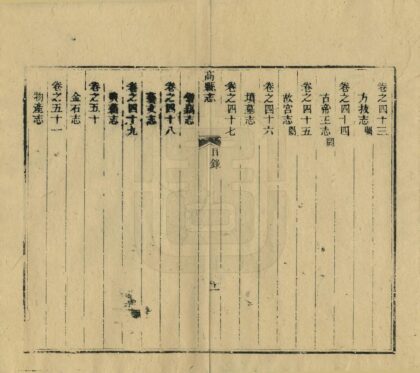 卷之四十三
方技志闕
卷之四十四
古帝王志闕
卷之四十五
故宮志闕
卷之四十六
墳墓志
卷之四十七
高縣志
目錄
一
卷之四十八
藝文志
卷之四十九
卷之五十
金石志
卷之五十一
物產志